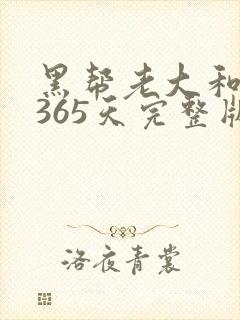 黑帮老大和
365天完整版
洛夜青裳